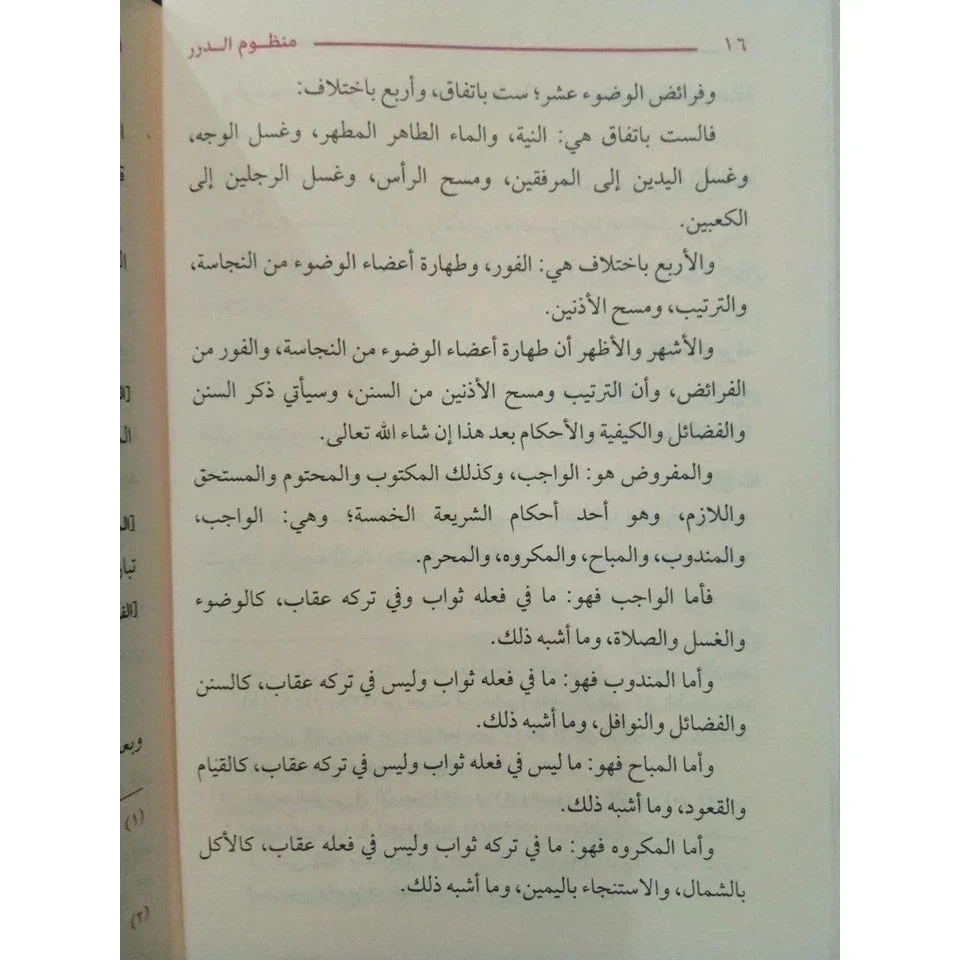 ١٦ منظوم الدرر
وفرائض الوضوء عشر؛ ست باتفاق، وأربع باختلاف:
فالست باتفاق هي: النية، والماء الطاهر المطهر، وغسل الوجه،
وغسل اليدين إلى المرفقين، ومسح الرأس، وغسل الرجلين إلى
الكعبين.
والأربع باختلاف هي: الفور، وطهارة أعضاء الوضوء من النجاسة،
والترتيب، ومسح الأذنين.
والأشهر والأظهر أن طهارة أعضاء الوضوء من النجاسة، والفور من
الفرائض، وأن الترتيب ومسح الأذنين من السنن، وسيأتي ذكر السنن
والفضائل والكيفية والأحكام بعد هذا إن شاء الله تعالى.
والمفروض هو: الواجب، وكذلك المكتوب والمحتوم والمستحق
واللازم، وهو أحد أحكام الشريعة الخمسة؛ وهي: الواجب،
والمندوب، والمباح، والمكروه، والمحرم.
فأما الواجب فهو: ما في فعله ثواب وفي تركه عقاب، كالوضوء
والغسل والصلاة، وما أشبه ذلك.
وأما المندوب فهو: ما في فعله ثواب وليس في تركه عقاب، كالسنن
والفضائل والنوافل، وما أشبه ذلك.
وأما المباح فهو: ما ليس في فعله ثواب وليس في تركه عقاب، كالقيام
والقعود، وما أشبه ذلك.
وأما المكروه فهو: ما في تركه ثواب وليس في فعله عقاب، كالأكل
بالشمال، والاستنجاء باليمين، وما أشبه ذلك.
(١)
(٢)